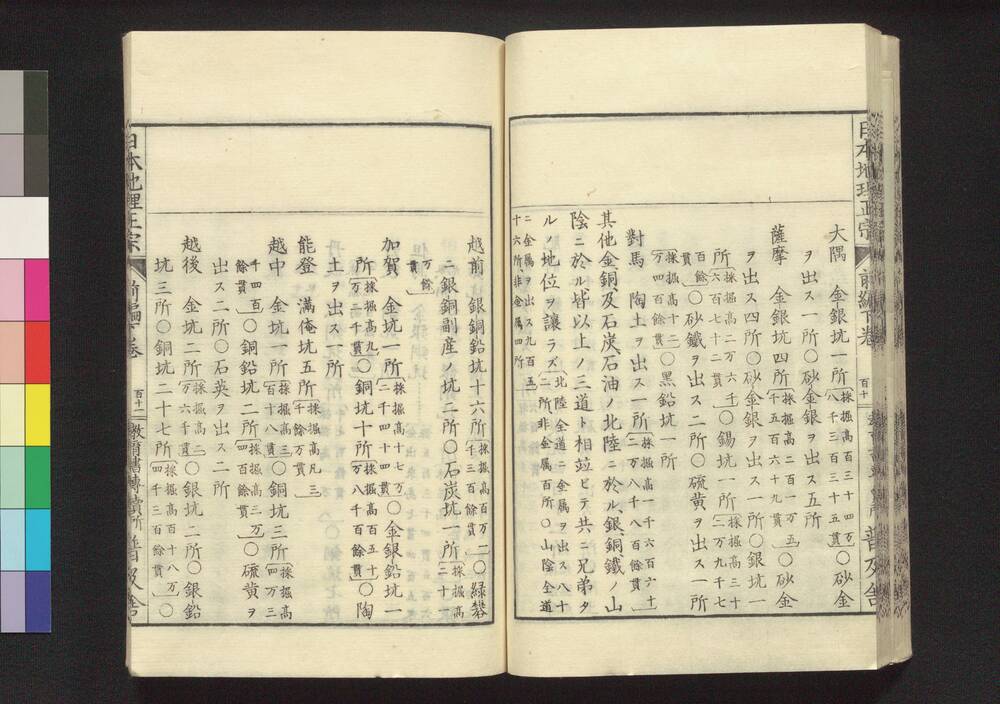 日本地理正宗 前編下卷 百十 普及舎
大隅 金銀坑一所採掘高百三十四万八千三百十五貫〇砂金
ヲ出ス一所〇砂金銀ヲ出ス五所
薩摩 金銀坑四所採掘高二百一万五千五百六十九貫〇砂金
ヲ出ス四所〇砂金銀ヲ出ス一所〇銀坑一
所採掘高二万六千六百七十二〇錫坑一所採掘高三十二万九千七
百餘貫〇砂鐵ヲ出ス二所〇硫黄ヲ出ス一所
採掘高十二万四百餘貫〇黒鉛坑一所
對馬 陶土ヲ出ス一所採掘高一千六百六十二万八千八百餘貫
其他金銅及石炭石油ノ北陸ニ於ル、銀、銅、鐵ノ山
陰ニ於ル皆以上ノ三道ト相竝ビテ共ニ兄弟タ
ルノ地位ヲ讓ラズ北陸全道ニ金属ヲ出ス八十二所、非金属百所〇山陰全道
ニ金属ヲ出ス九百五十六所、非金属四所
越前 銀銅鉛坑十六所採掘高百万二千三百餘貫〇緑礬
ニ銀銅副産ノ坑二所〇石炭坑一所採掘高二十一
万餘貫
加賀 金坑一所採掘高十七万二千四十四貫〇金銀鉛坑一
所採掘高九万二千貫〇銅坑十所採掘高百五十万八千百餘貫〇陶
土ヲ出ス一所
能登 滿俺坑五所採掘高凡三千餘万貫
越中 金坑一所採掘高三百十八貫〇銅坑三所採掘高四万三
千四百餘貫〇銅鉛坑二所採掘高二万四百餘貫〇硫黄ヲ
出ス二所〇石英ヲ出ス二所
越後 金坑二所採掘高二万六千貫〇銀坑二所〇銀鉛
坑三所〇銅坑二十七所採掘高百十八万四千三百餘貫〇
日本地理正宗 前編下卷 百十一 普及舎